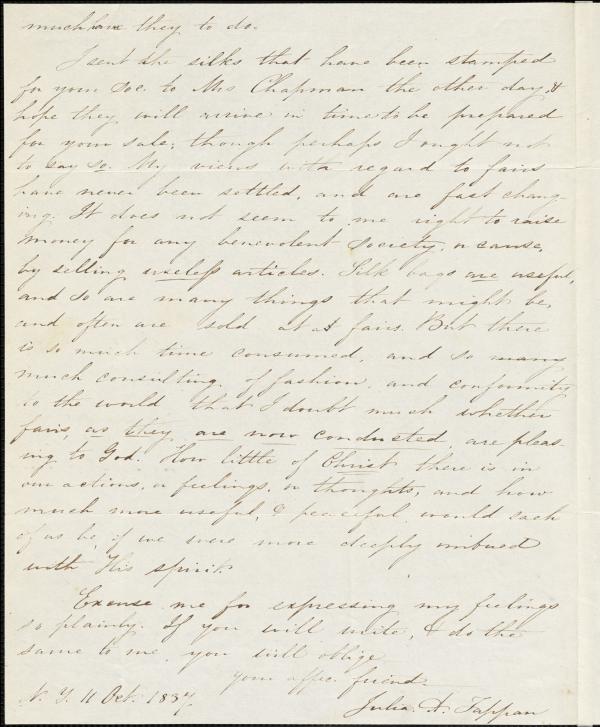 much have they to do.
I sent the silks that have been stamped
for your Soc. to Mrs Chapman the other day, &
hope they will arrive in time to be prepared
for your sale; though perhaps I ought not
to say so. My views with regard to fairs
have never been settled, and are fast chang-
ing. It does not seem to me right to raise
money for any benevolent society, or cause,
by selling useless articles. Silk bags are useful,
and so are many things that might be,
and often are sold at fairs. But there
is so much time consumed, and so many
much consulting of fashion, and conformity
to the world that I doubt much whether
fairs, as they are now conducted, are pleas-
ing to God. How little of Christ there is in
our actions, or feelings, or thoughts, and how
much more useful, & peaceful would each
of us be, if we were more deeply imbued
with His spirit.
Excuse me for expressing my feelings
so plainly. If you will write, & do the
same to me, you will oblige
your affec. friend.
N. Y. 11 Oct. 1837. Julia. A. Tappan